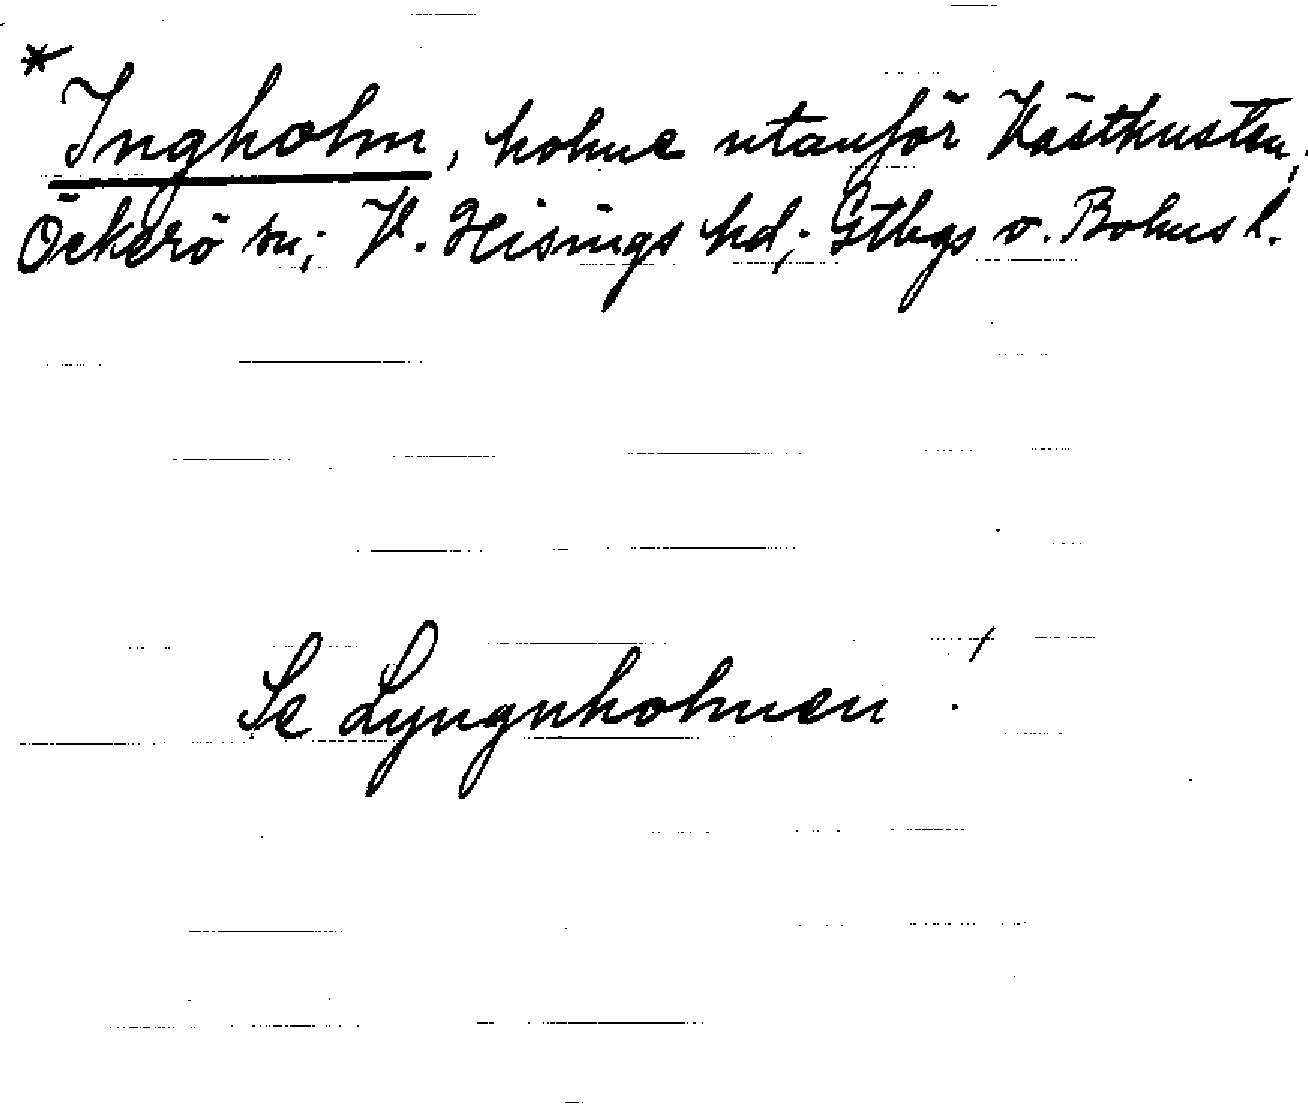 * Ingholm, holme utanför Västkusten,
Öckerö sn; V. Hisings hd; Gtbgs o. Bohus l.
Se Lyngnholmen !